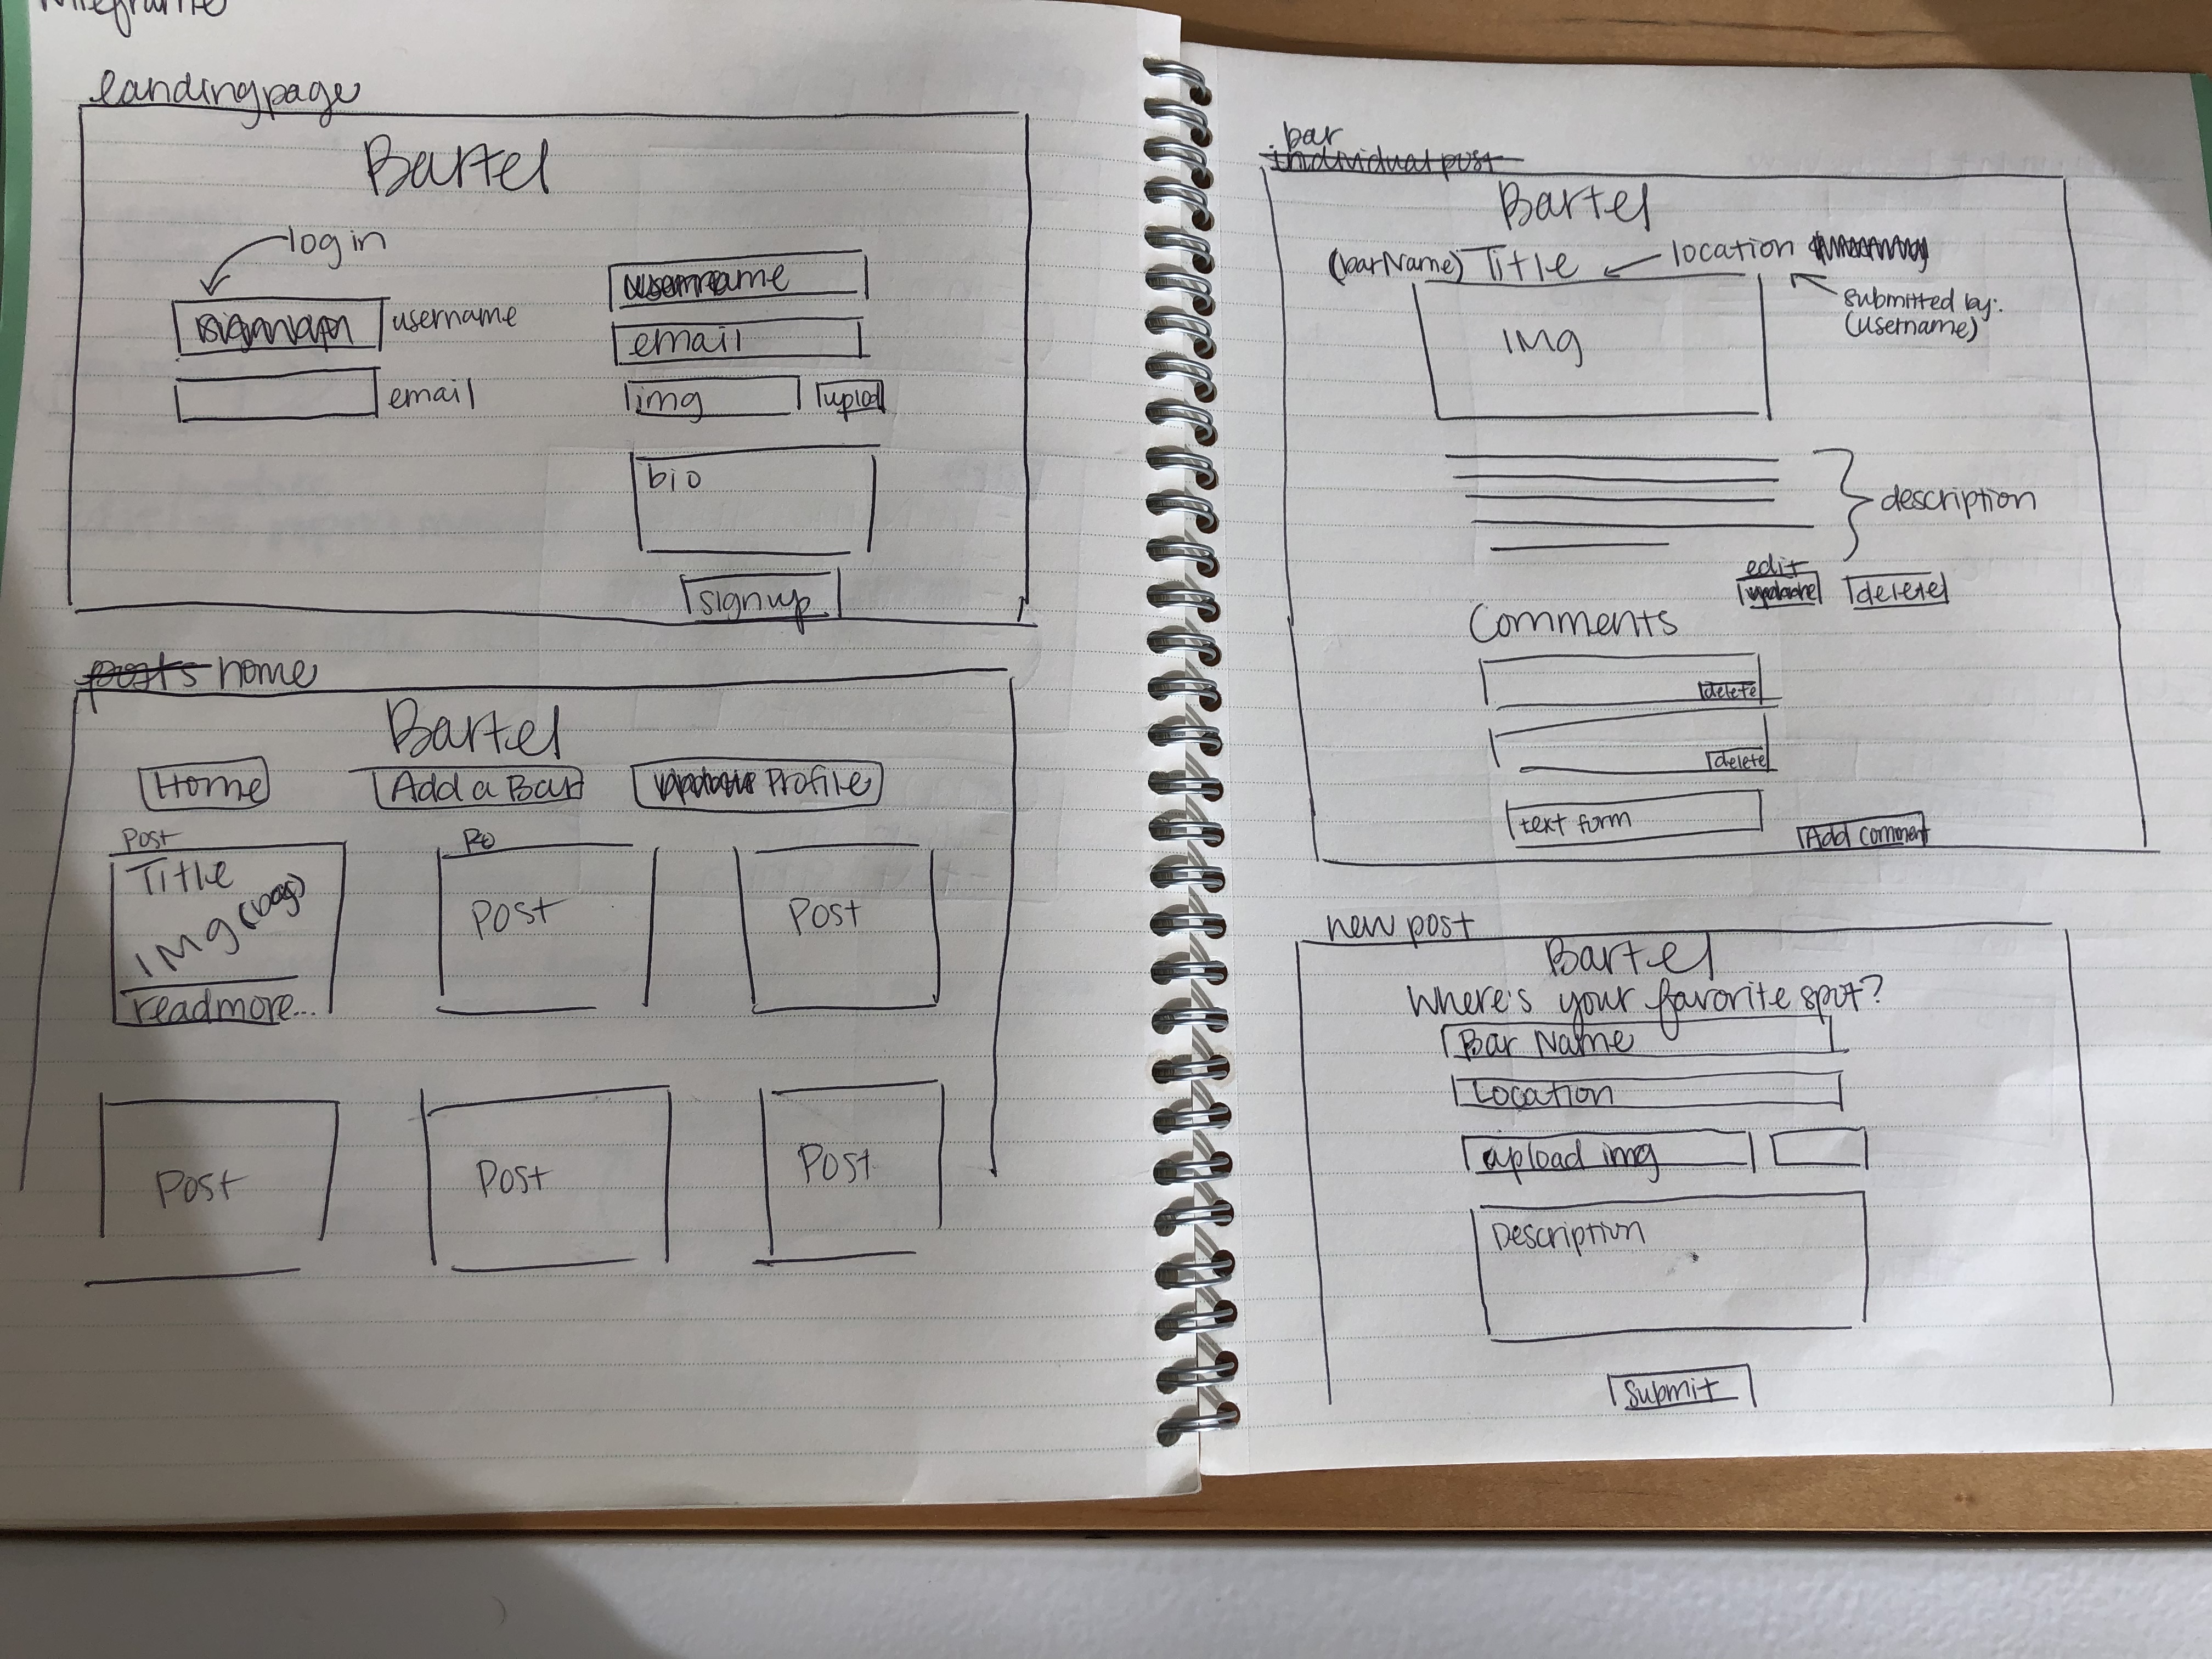 landingpage
Bartel
login
username
username
email
email
img
uplod
bio
signup
posts home
Bartel
Home
Add a Bar
Profile
Post
Title
IMG (bag)
readmore...
Po
Post
Post
Post
Post
Post
bar
individual post
Bartel
(barName) Title
location
submitted by:
(username)
IMg
description
edit
update
delete
Comments
delete
delete
text form
Add comment
new post
Bartel
Where's your favorite spot?
Bar Name
Location
upload img
Description
Submit